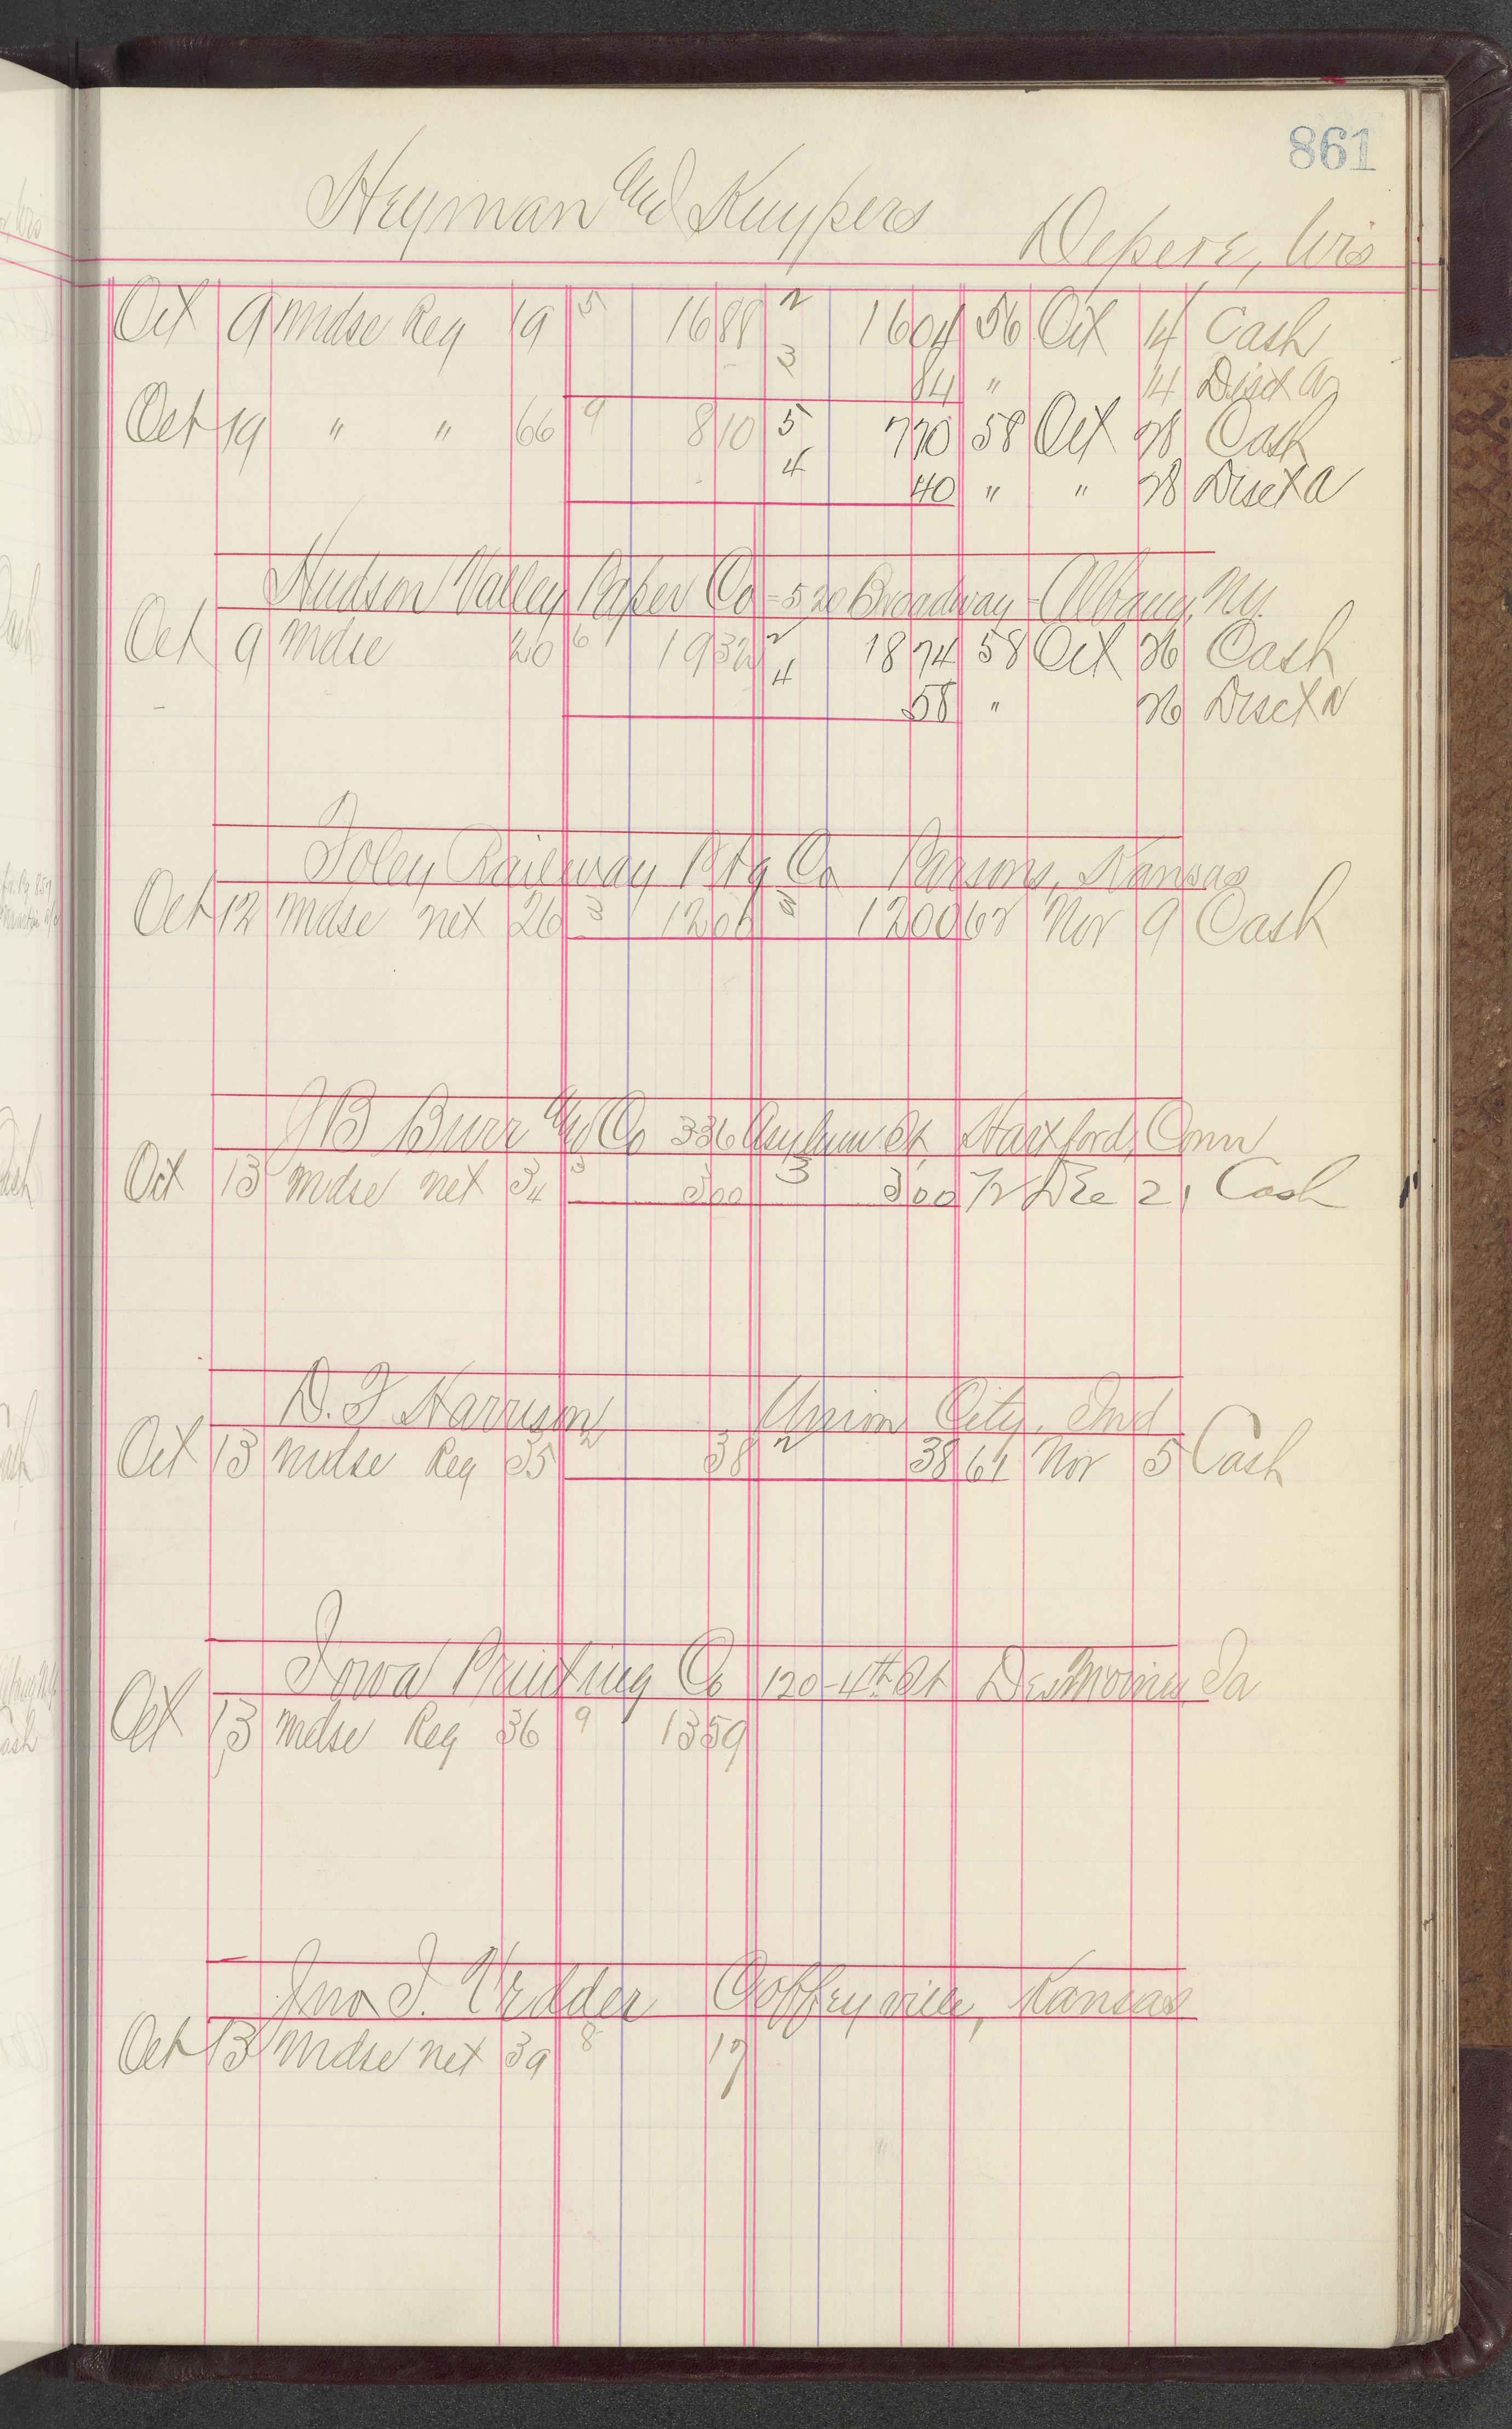 861
Heyman and Kuypers Depere, Wis
Oct 9 Mdse Reg 19 5 16 88 2 16 04 56 Oct 14 Cash
3 84 " 14 Disct a
Oct 19 " " 66 9 8 10 5 7 70 58 Oct 28 Cash
4 40 " " 28 Disct a
Hudson Valley Paper Co - 520 Broadway - Albany, Ny.
Oct 9 Mdse 20 6 19 32 2 18 74 58 Oct 26 Cash
4 58 " 26 Disct a
Foley Railway Ptg Co Parsons, Kansas
Oct 12 Mdse net 26 3 12 00 3 12 00 62 Nov 9 Cash
J B Burr and Co 336 Asylum St, Hartford, Conn
Oct 13 Mdse net 34 3 3 00 3 3 00 72 Dec 21 Cash
D. F Harrison Union City, Ind
Oct 13 Mdse Reg 35 2 38 2 38 61 Nov 5 Cash
Iowa Printing Co 120-4th St Des Moines Ia
Oct 13 Mdse Reg 36 9 13 59
Jno J. Vedder Coffeyville, Kansas
Oct 13 Mdse net 39 8 17